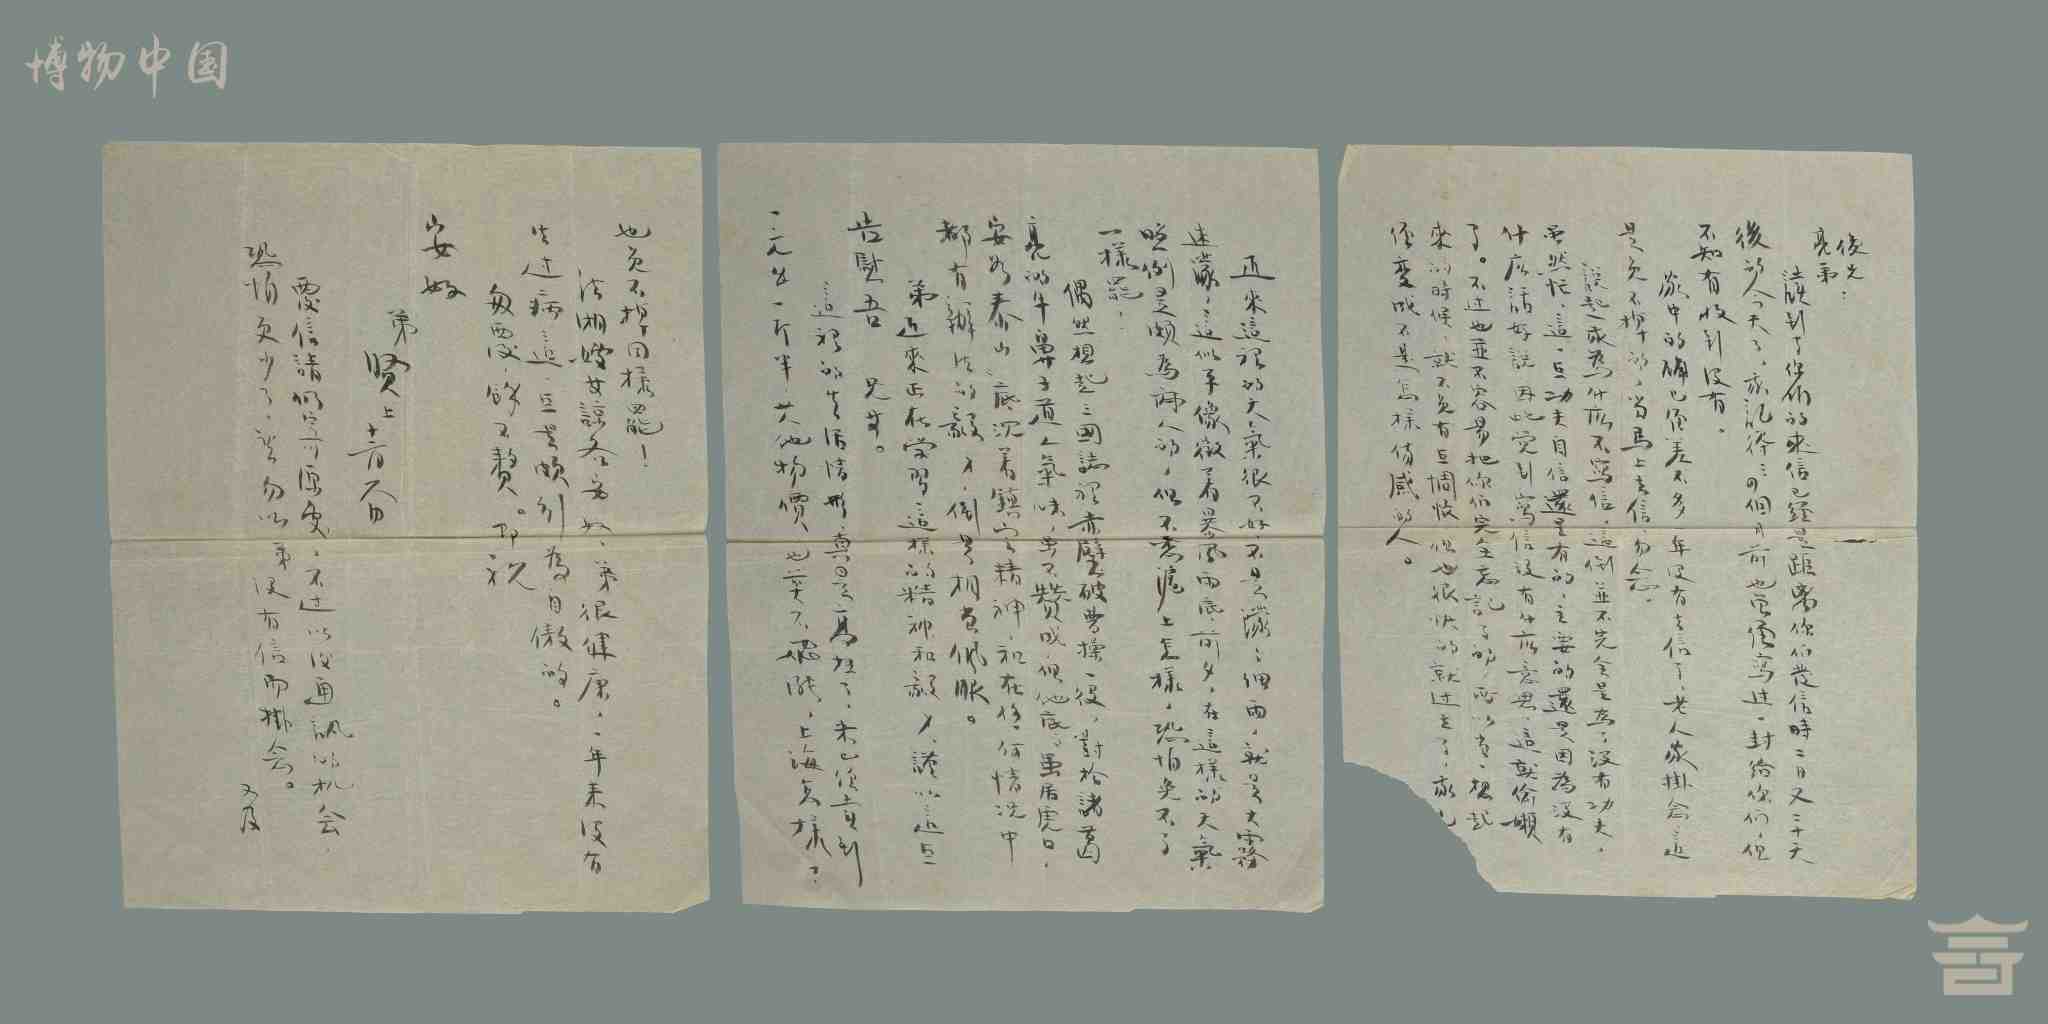 博物中国
俊先:
亮弟
讀到了你俩的來信已經是距離你們發信時二日又二十天
後的今天了,我記得三四個月前也曾儘寫过一封給你們,但
不知有收到没有。
家中的确已經差不多一年没有去信了,老人家掛念這
是免不掉的,当馬上去信,勿念。
說起我為什庅不寫信,這倒並不完全是為了没有功夫,
雖然忙,這一点功夫自信還是有的,主要的還是因為没有
什庅話好說,因此覚到寫信没有什庅意思,這就偷懒
了。不过也並不容易把你们完全忘記了的,所以当一想起
來的時候,就不免有点惆悵,但也很快的就过去了,我
侄變成不是怎樣傷感的人。
近來這裡的天氣很不好,不是濛濛細雨,就是大霧
迷濛,這似乎像徵着暴風雨底前夕,在這樣的天氣
倒是頗為惱人的,但不知滬上怎樣,恐怕免不了
一樣罷!
偶然想起三國誌裡赤壁破曹操一役,對於諸葛
亮的牛鼻子道人氣味,雖不赞成,但他底“虽居虎口,
安如泰山”底沉着鎮定精神,和在任何情况中
都有辦法的毅力,倒是相当佩服。
弟近來正在学習這樣的精神和毅力,謹以這点
告慰吾 兄等。
這裡的生活情形,真是高极了,米已經賣到
一元生一斤半,其他物價也並不低,上海怎樣?
也免不掉同樣罷!
法湘嫂女諒各安好,弟很健康,一年来没有
生过病,這一点是頗引為自傲的。
匆覆,餘不贅。即祝
安好
弟
賢上 十二月八日
覆信請仍寄原处,不过以後通訊的机会,
恐怕更少了,望勿以弟没有信而掛念。
又及